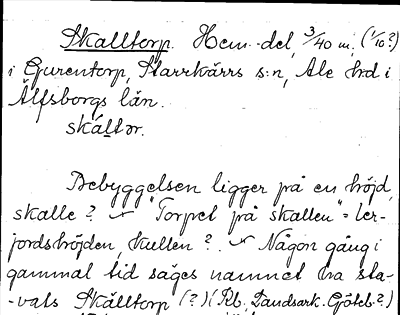 Skalltorp. Hem. del, 3/40 m. (1/10?)
i Gurentorp, Starrkärrs s:n, Ale hrd i
Älfsborgs län.
skáltɔr.
Bebyggelsen ligger på en höjd,
skalle? "Torpet på skallen" = ler-
jordshöjden, kullen? Någon gång i
gammal tid säges namnet ha sta-
-vats Skålltorp (?) (Rb, Landsark. Göteb.?)